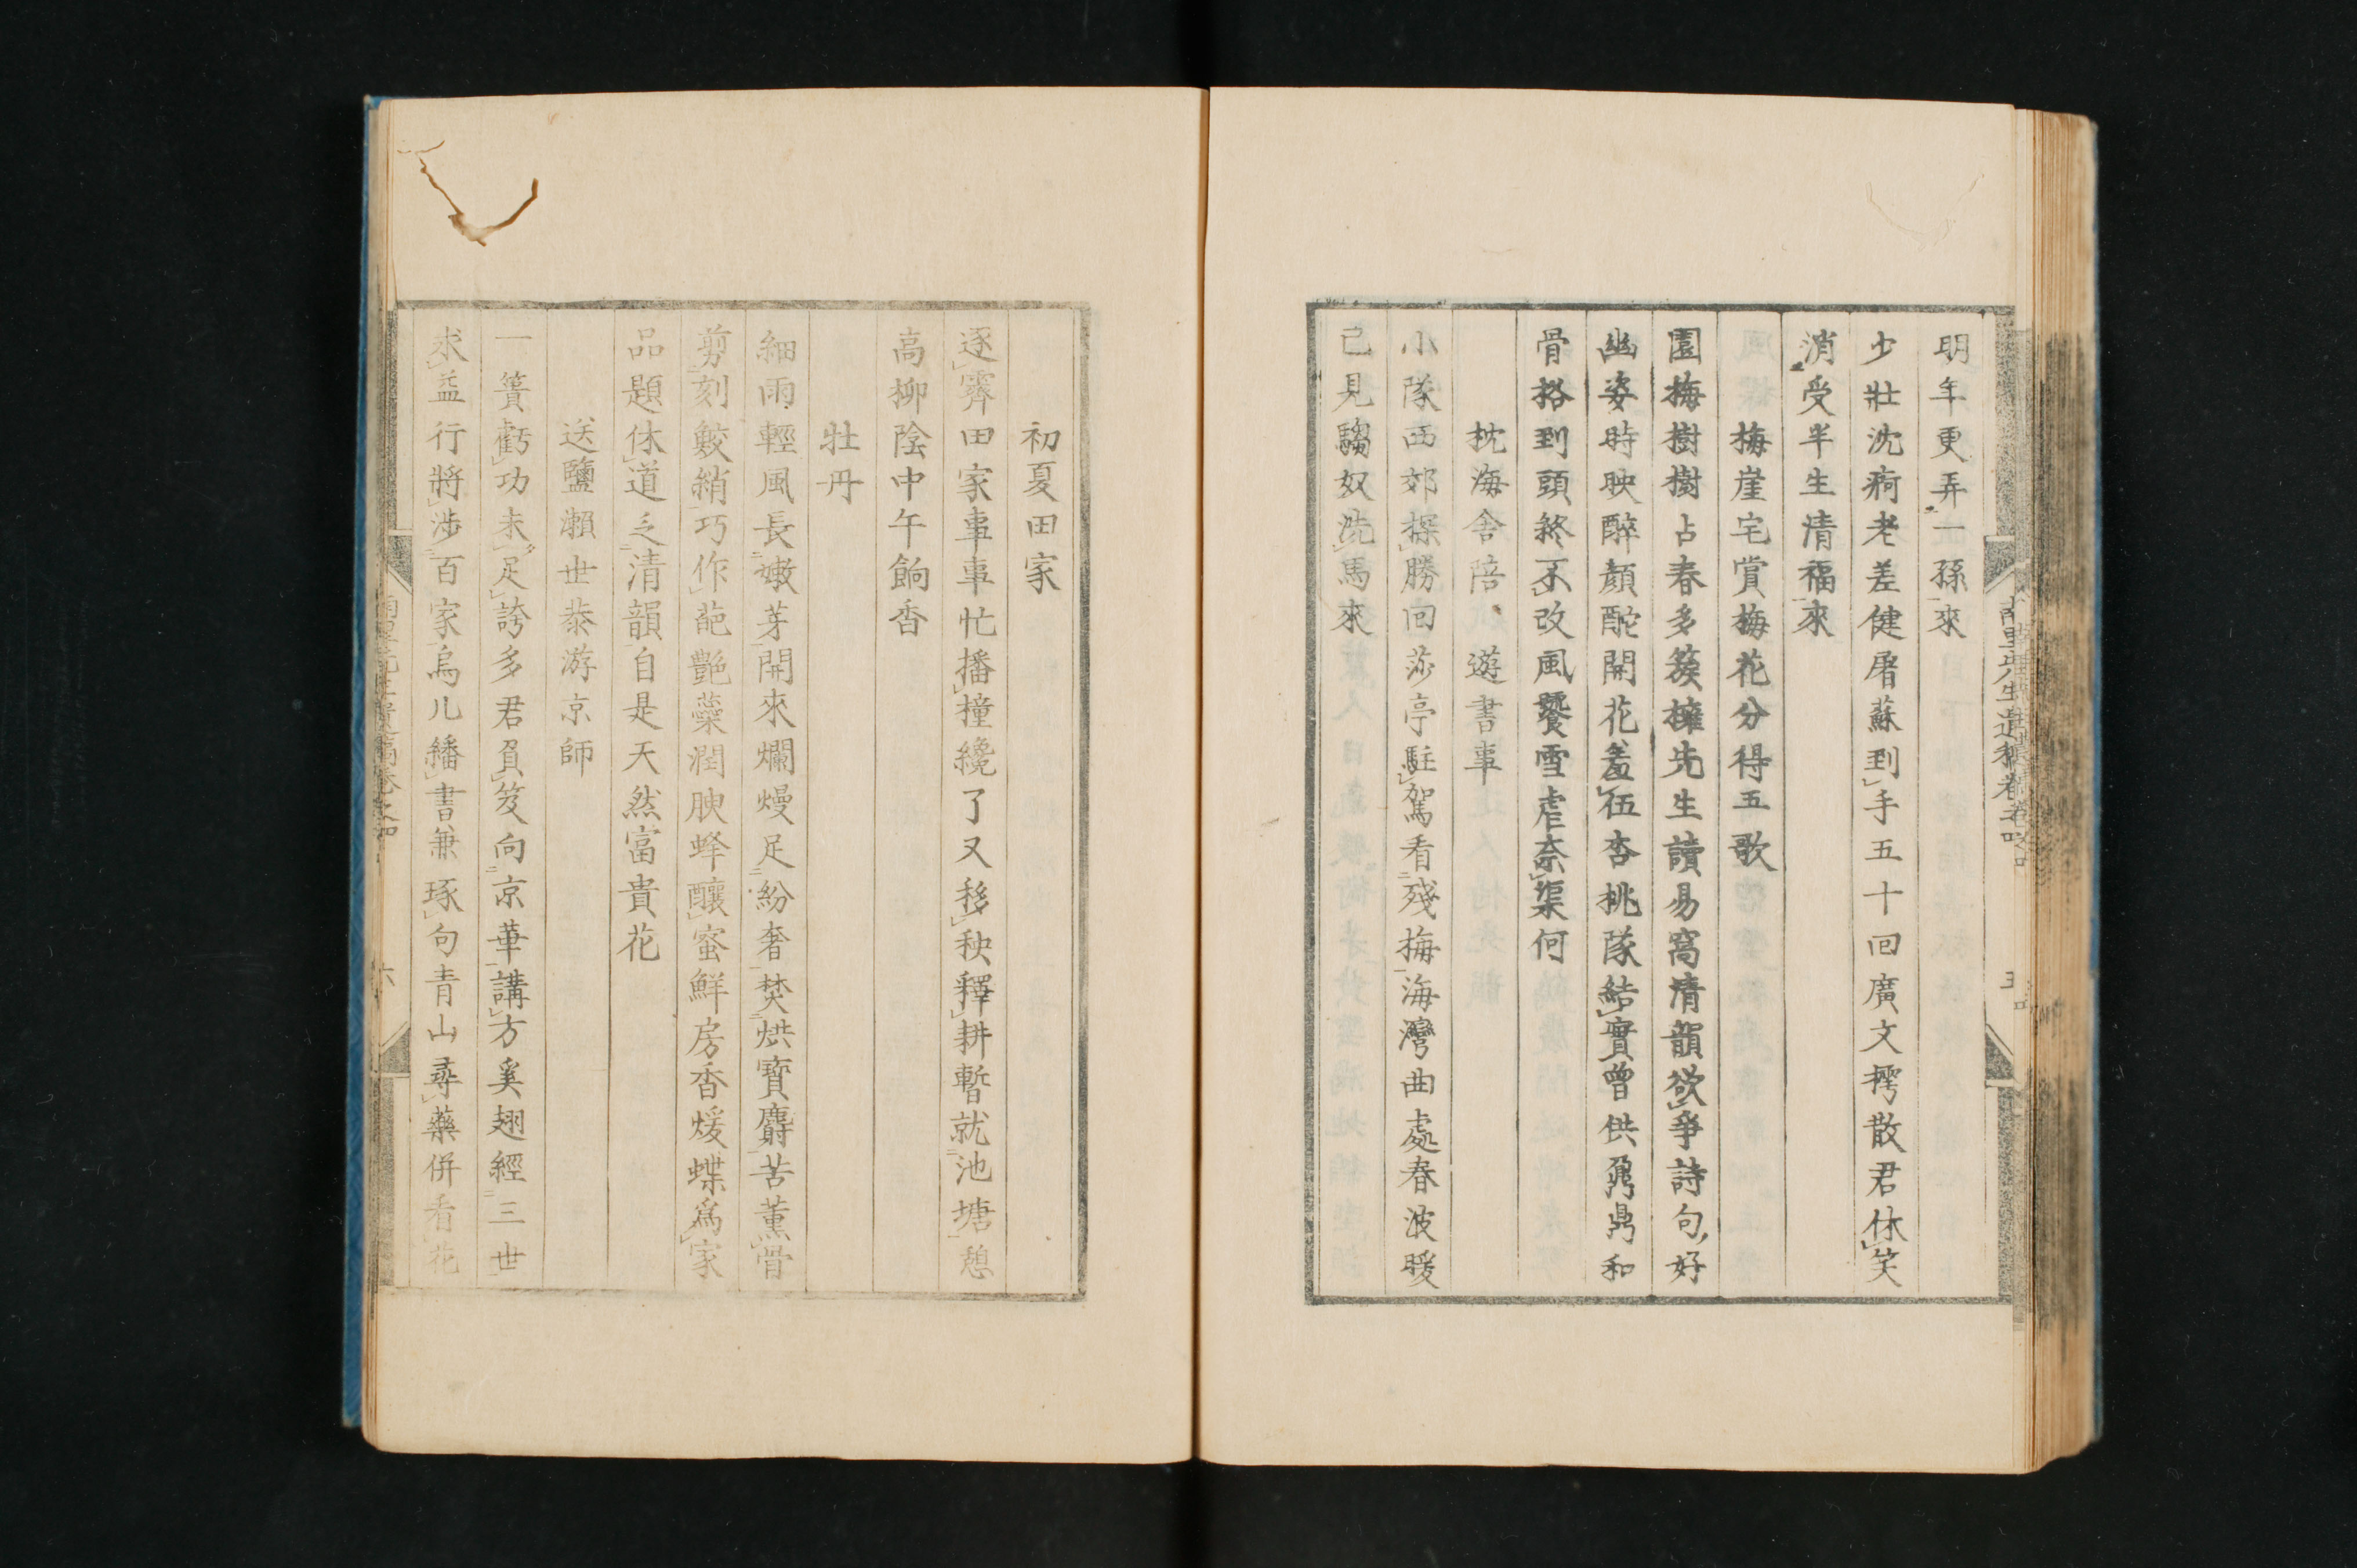 明年更弄一孫來
少壯沈痾老差健屠蘇到手五十回廣文樗散君休笑
消受半生清福來
梅崖宅賞梅花分得五歌
園梅樹樹占春多簇擁先生讀易窩清韻欲爭詩句好
幽姿時映醉顏酡開花羞伍杏桃隊結實曾供鼐鼎和
骨格到頭終不改風饕雪虐奈渠何
枕海舍陪遊書事
小隊西郊探勝回莎亭駐駕看殘梅海灣曲處春波暖
已見騶奴洗馬來
初夏田家
逐霽田家事事忙播撞纔了又移秧釋耕暫就池塘憩
高柳陰中午餉香
牡丹
細雨輕風長嫩芽開來爛熳足紛奢焚烘寶麝苦薰骨
剪刻鮫綃巧作葩艷蘂潤腴蜂釀蜜鮮房香煖蝶為家
品題休道乏清韻自是天然富貴花
送鹽瀨世泰游京師
一簣虧功未足誇多君負笈向京華講方奚翅經三世
求益行將涉百家烏几繙書兼琢句青山尋藥併看花
六